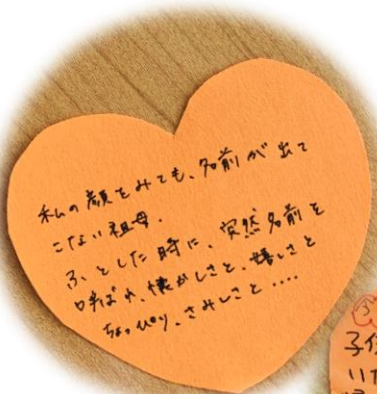 私の顔をみても、名前が出て
こない祖母.
ふとした時に、突然名前を
呼ばれ、懐かしさと、嬉しさと
ちょっぴり、さみしさと....
子
い